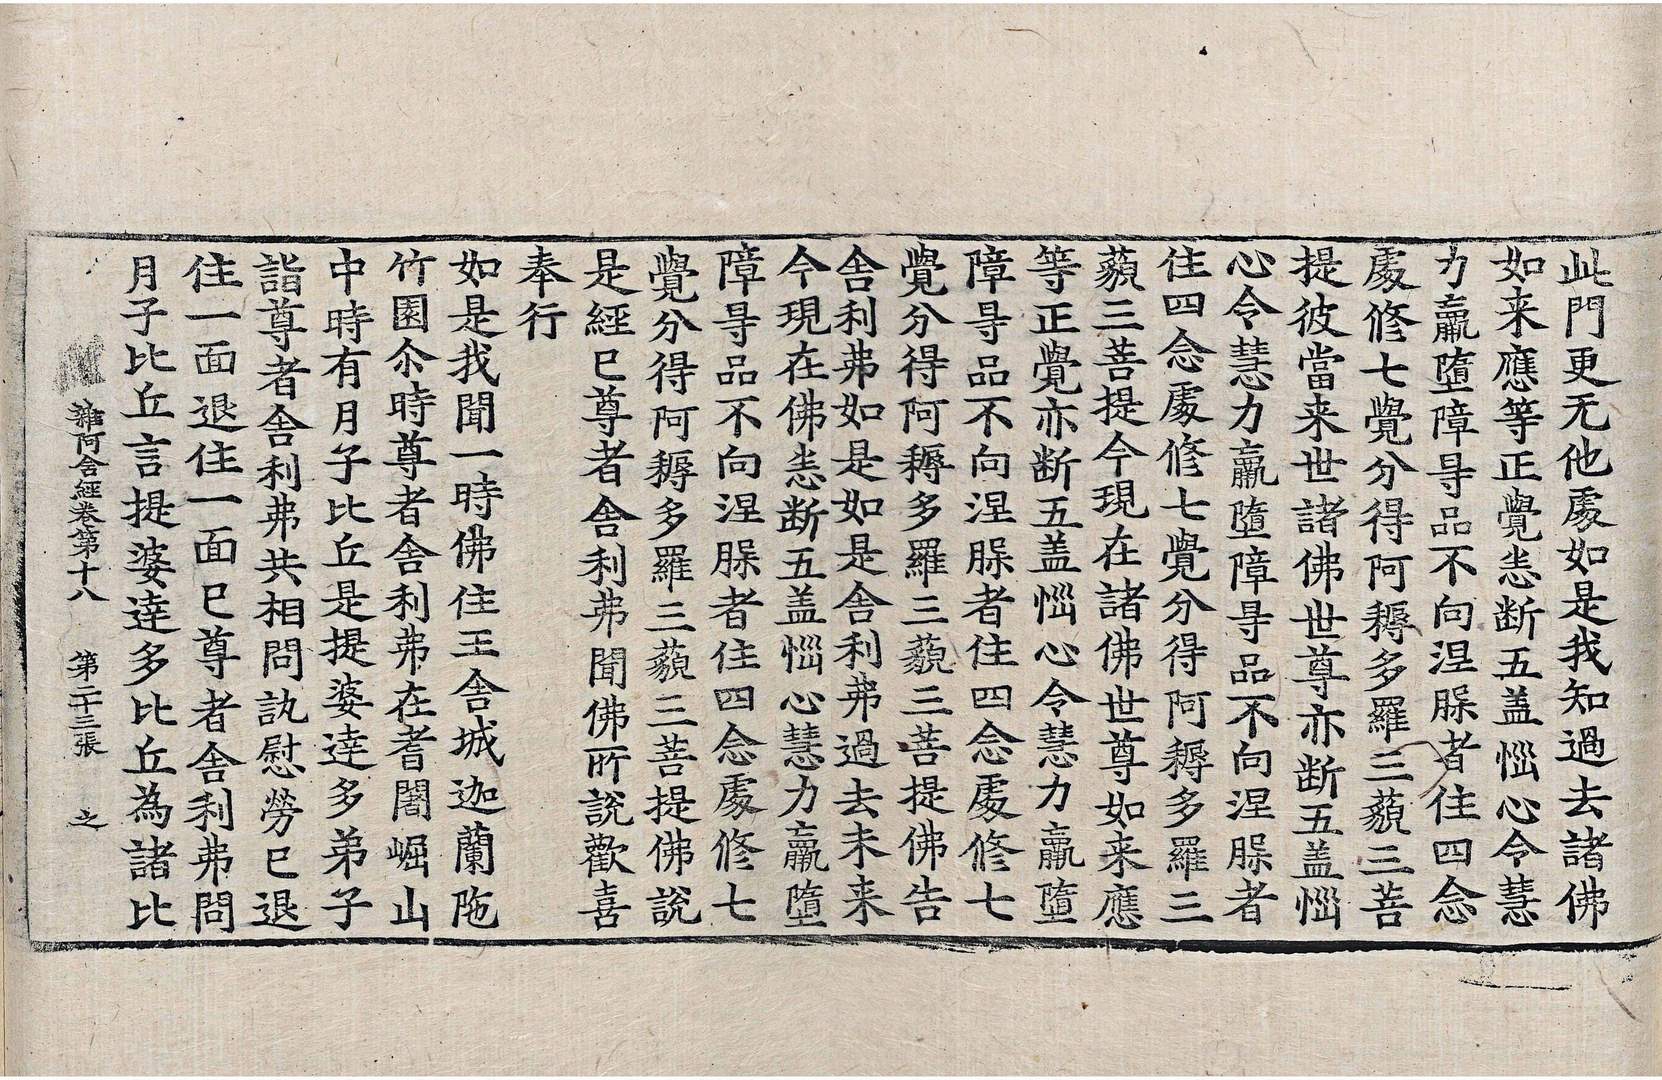 此門更无他處如是我知過去諸佛
如来應等正覺悉断五盖惱心令慧
力羸墮障㝵品不向涅槃者住四念
處修七覺分得阿耨多羅三藐三菩
提彼當来世諸佛世尊亦断五盖惱
心令慧力羸墮障㝵品不向涅槃者
住四念處修七覺分得阿耨多羅三
藐三菩提今現在諸佛世尊如来應
等正覺亦断五盖惱心令慧力羸墮
障㝵品不向涅槃者住四念處修七
覺分得阿耨多羅三藐三菩提佛告
舍利弗如是如是舍利弗過去未来
今現在佛悉断五盖惱心慧力羸墮
障㝵品不向涅槃者住四念處修七
覺分得阿耨多羅三藐三菩提佛說
是經已尊者舍利弗聞佛所說歡喜
奉行
如是我聞一時佛住王舍城迦蘭陁
竹園尒時尊者舍利弗在耆闍崛山
中時有月子比丘是提婆達多弟子
詣尊者舍利弗共相問訊慰勞已退
住一面退住一面已尊者舍利弗問
月子比丘言提婆達多比丘為諸比
雜阿含經卷第十八 第二十三張 之